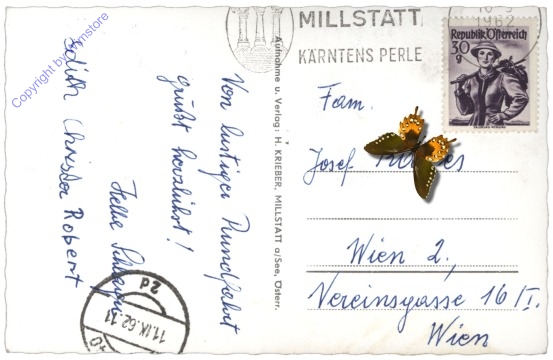 MILLSTATT
KÄRNTENS PERLE
1962
Republik Österreich
30
g
Copyright by
Von lustiger Rundfahrt
grüßt herzlichst!
Edith Christa Robert
Aufnahme u. Verlag: H. KRIEBER, MILLSTATT a/See, Österr.
Fam.
Josef
Wien 2,
Vereinsgasse 16/I.
Wien
11.IX.62.11
2d